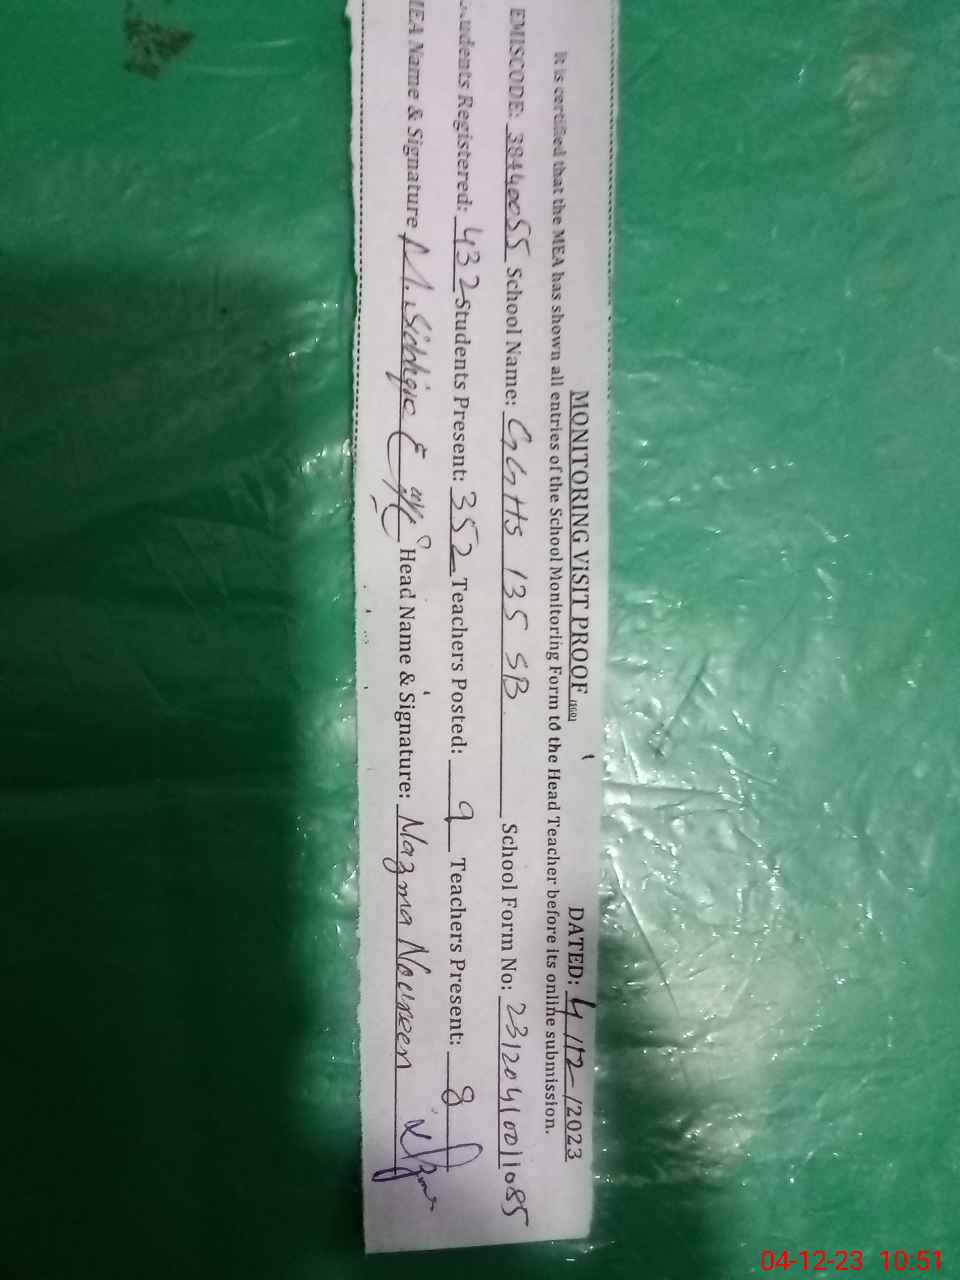 MONITORING VISIT PROOF (SED) DATED: 4/12/2023
It is certified that the MEA has shown all entries of the School Monitoring Form to the Head Teacher before its online submission.
EMISCODE: 38440055 School Name: GGHS 135 SB School Form No: 23120410011085
Students Registered: 432 Students Present: 352 Teachers Posted: 9 Teachers Present: 8
MEA Name & Signature M. Siddique Head Name & Signature: Nazma Noureen
04-12-23 10:51